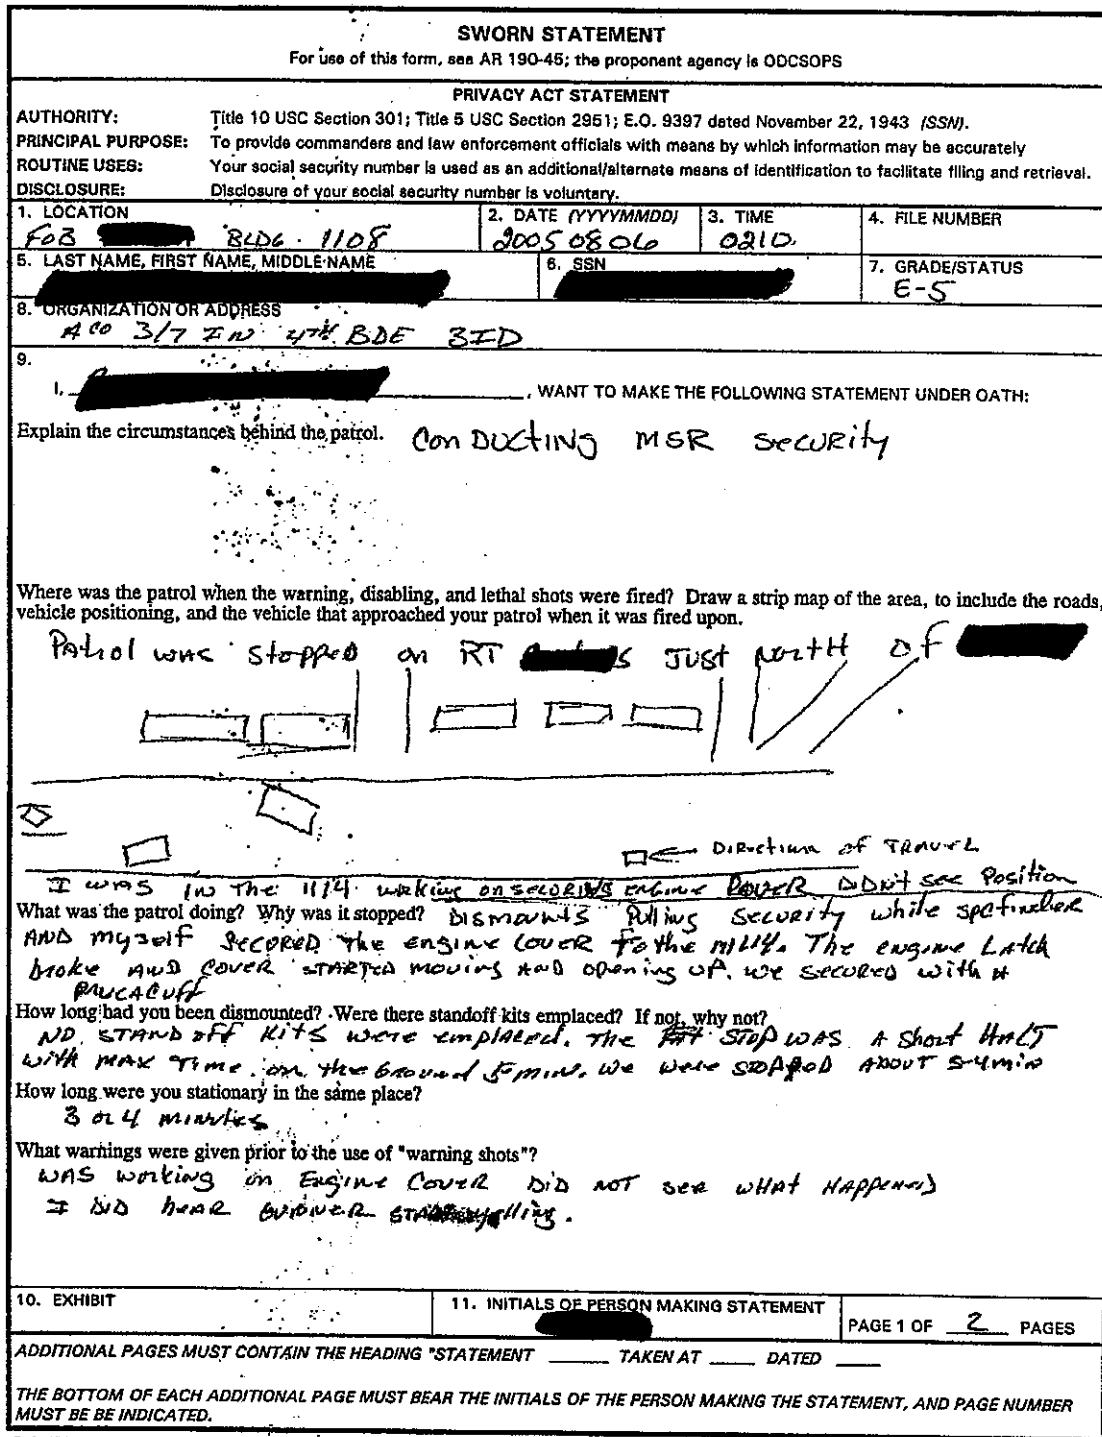 SWORN STATEMENT
For use of this form, see AR 190-45; the proponent agency is ODCSOPS
PRIVACY ACT STATEMENT
AUTHORITY: Title 10 USC Section 301; Title 5 USC Section 2951; E.O. 9397 dated November 22, 1943 (SSN).
PRINCIPAL PURPOSE: To provide commanders and law enforcement officials with means by which information may be accurately
ROUTINE USES: Your social security number is used as an additional/alternate means of identification to facilitate filing and retrieval.
DISCLOSURE: Disclosure of your social security number is voluntary.
1. LOCATION 2. DATE (YYYYMMDD) 3. TIME 4. FILE NUMBER
FOB BLDG. 1108 20050806 0210
5. LAST NAME, FIRST NAME, MIDDLE NAME 6. SSN 7. GRADE/STATUS
E-5
8. ORGANIZATION OR ADDRESS
A CO 3/7 IN 4TH BDE 3ID
9.
I, , WANT TO MAKE THE FOLLOWING STATEMENT UNDER OATH:
Explain the circumstances behind the patrol. ConDUCTING MSR Security
Where was the patrol when the warning, disabling, and lethal shots were fired? Draw a strip map of the area, to include the roads,
vehicle positioning, and the vehicle that approached your patrol when it was fired upon.
Patrol was stopped on RT JUST North of
Direction of TRAVEL
I was in the 1114 working on securing engine cover Didn't see Position
What was the patrol doing? Why was it stopped? Dismounts Pulling Security while
AND myself SECURED the engine cover to the M1114. The engine Latch
broke AND cover STARTED moving AND opening up. we secured with a
How long had you been dismounted? Were there standoff kits emplaced? If not, why not?
NO STAND off Kits were emplaced. The STOP WAS A Short HALT
with MAX Time on the Ground 5 min. We were STOPPED ABOUT 3-4 min
How long were you stationary in the same place?
3 or 4 minutes
What warnings were given prior to the use of "warning shots"?
WAS working on Engine Cover DID NOT see what HAPPENED
I DID hear GUNNER yelling.
10. EXHIBIT 11. INITIALS OF PERSON MAKING STATEMENT PAGE 1 OF 2 PAGES
ADDITIONAL PAGES MUST CONTAIN THE HEADING "STATEMENT ______ TAKEN AT _____ DATED _____
THE BOTTOM OF EACH ADDITIONAL PAGE MUST BEAR THE INITIALS OF THE PERSON MAKING THE STATEMENT, AND PAGE NUMBER
MUST BE BE INDICATED.